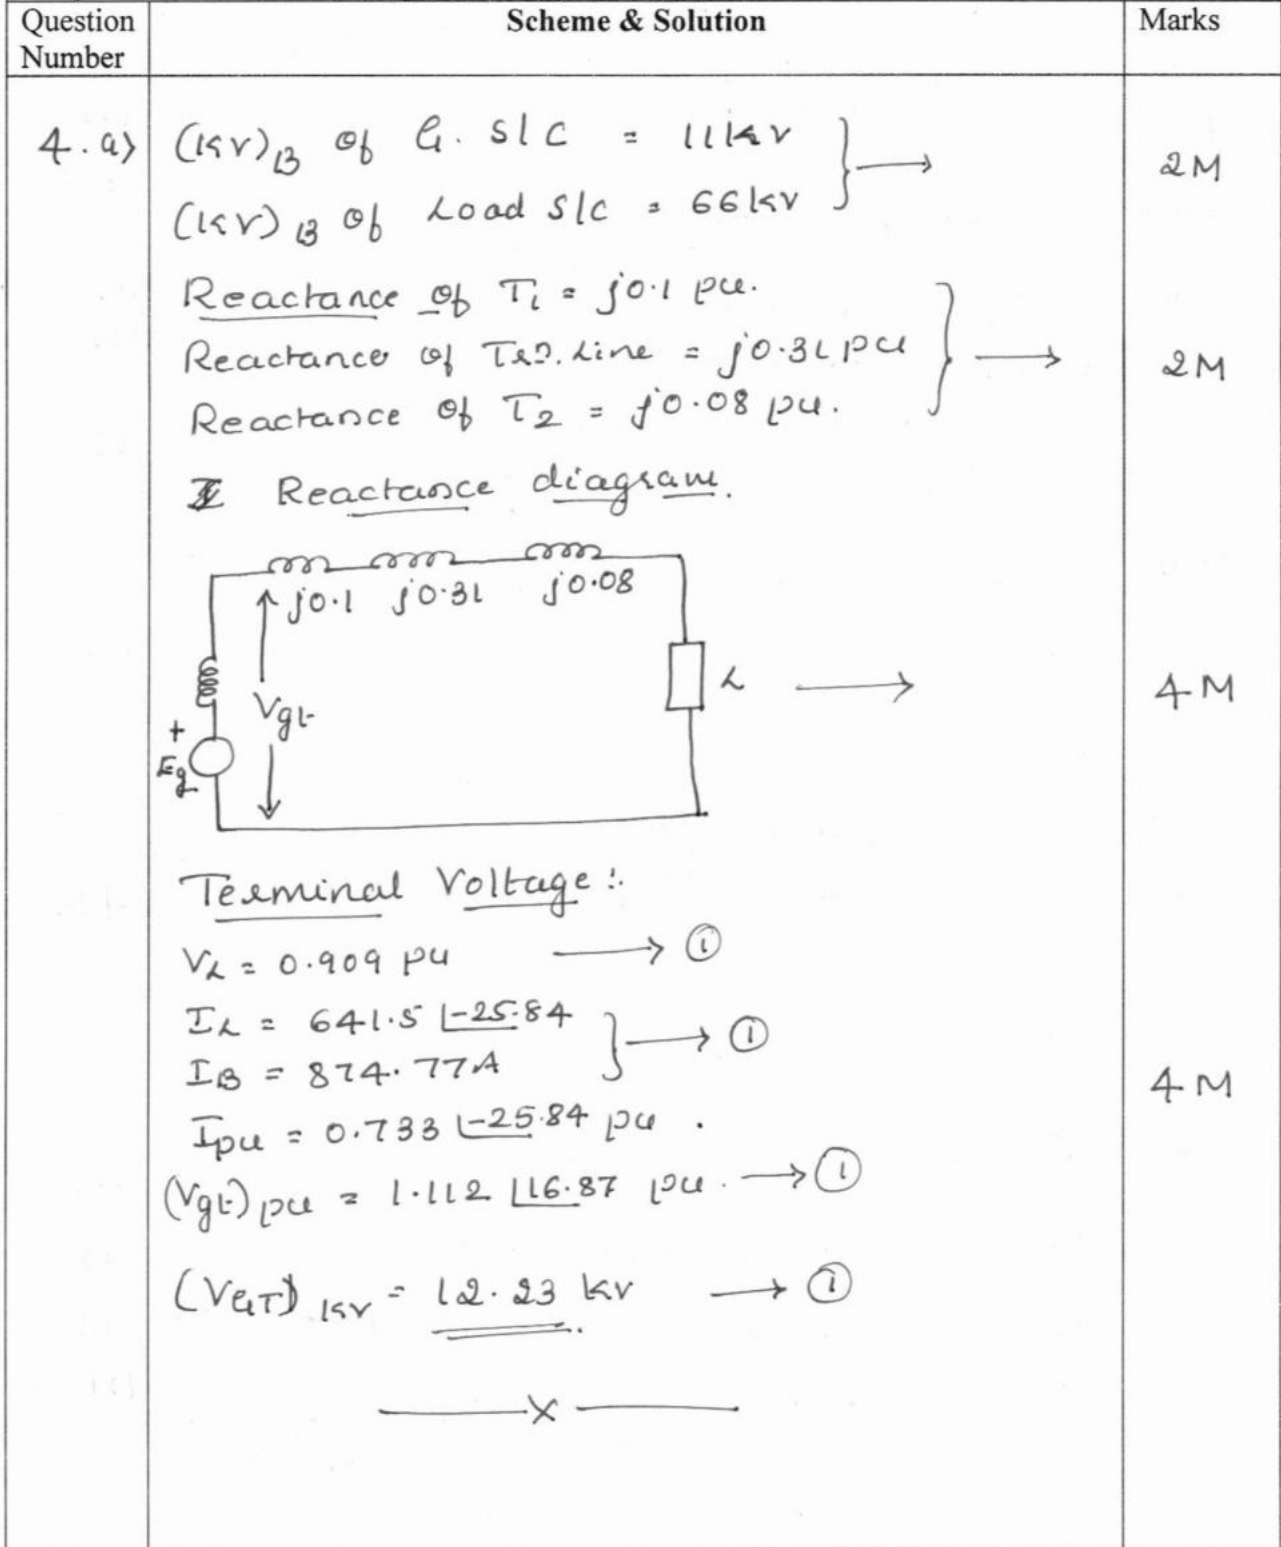 Question Number
Scheme & Solution
Marks
4.a) (kV)B of G. s/c = 11kV
(kV)B of Load s/c = 66kV
2M
Reactance of T1 = j0.1 pu.
Reactance of Trn. Line = j0.31 pu
Reactance of T2 = j0.08 pu.
2M
Reactance diagram.
j0.1 j0.31 j0.08
+
Eg
Vgt
L
4M
Terminal Voltage:
VL = 0.909 pu → ①
IL = 641.5 ∠-25.84
IB = 874.77A
→ ①
4M
Ipu = 0.733 ∠-25.84 pu.
(Vgt)pu = 1.112 ∠16.87 pu. → ①
(VGT)kV = 12.23 kV → ①
x